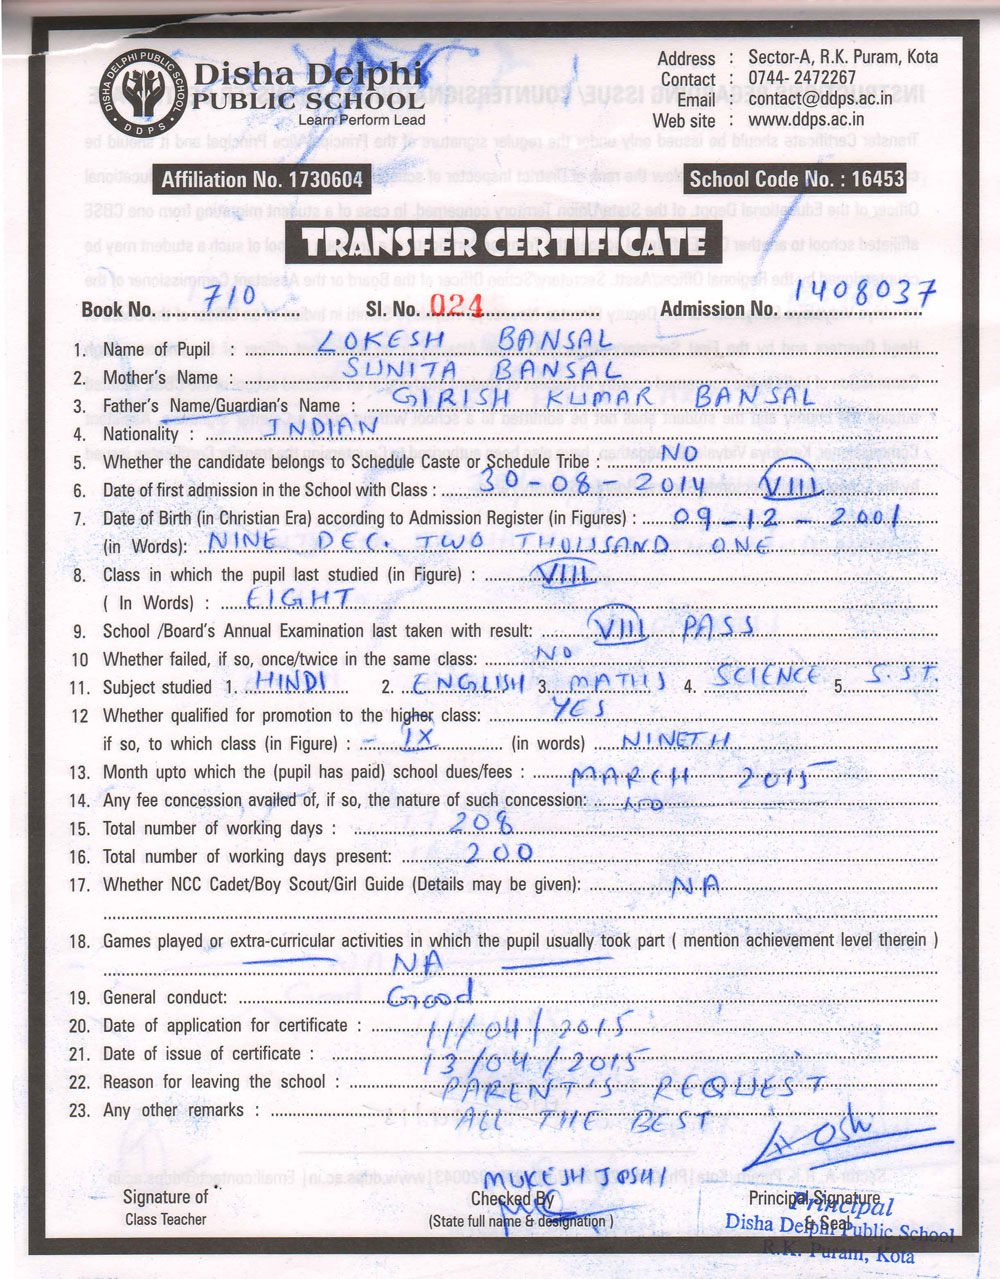 DISHA DELPHI PUBLIC SCHOOL
DDPS
Disha Delphi
PUBLIC SCHOOL
Learn Perform Lead
Address : Sector-A, R.K. Puram, Kota
Contact : 0744- 2472267
Email : contact@ddps.ac.in
Web site : www.ddps.ac.in
Affiliation No. 1730604
School Code No. : 16453
TRANSFER CERTIFICATE
Book No. 710 Sl. No. 024 Admission No. 1408037
1. Name of Pupil : LOKESH BANSAL
2. Mother's Name : SUNITA BANSAL
3. Father's Name/Guardian's Name : GIRISH KUMAR BANSAL
4. Nationality : INDIAN
5. Whether the candidate belongs to Schedule Caste or Schedule Tribe : NO
6. Date of first admission in the School with Class : 30-08-2014 VIII
7. Date of Birth (in Christian Era) according to Admission Register (in Figures) : 09-12-2001
(in Words): NINE DEC. TWO THOUSAND ONE
8. Class in which the pupil last studied (in Figure) : VIII
( In Words) : EIGHT
9. School /Board's Annual Examination last taken with result: VIII PASS
10 Whether failed, if so, once/twice in the same class: NO
11. Subject studied 1. HINDI 2. ENGLISH 3. MATHS 4. SCIENCE 5. S.ST.
12 Whether qualified for promotion to the higher class: YES
if so, to which class (in Figure) : - IX (in words) NINETH
13. Month upto which the (pupil has paid) school dues/fees : MARCH 2015
14. Any fee concession availed of, if so, the nature of such concession: NO
15. Total number of working days : 208
16. Total number of working days present: 200
17. Whether NCC Cadet/Boy Scout/Girl Guide (Details may be given): NA
18. Games played or extra-curricular activities in which the pupil usually took part ( mention achievement level therein )
NA
19. General conduct: Good
20. Date of application for certificate : 11/04/2015
21. Date of issue of certificate : 13/04/2015
22. Reason for leaving the school : PARENT'S REQUEST
23. Any other remarks : ALL THE BEST
MUKESH JOSHI
Signature of Checked By Principal Signature
Class Teacher (State full name & designation ) & Seal
Principal
Disha Delphi Public School
R.K. Puram, Kota